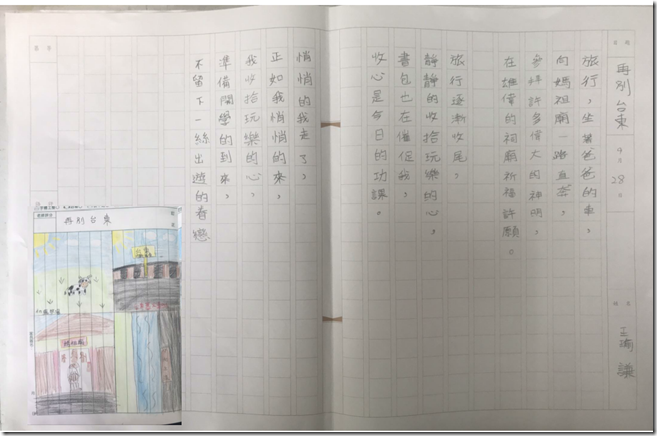 再別台東
4月28日
旅行，坐著爸爸的車，
向媽祖廟一路直奔，
參拜許多偉大的神明，
在雄偉的祠廟祈福許願。
旅行逐漸收尾，
靜靜的收拾玩樂的心，
書包也在催促我，
收心是今日的功課。
悄悄的我走了，
正如我悄悄的來，
我收拾玩樂的心，
準備開學的到來，
不留下一絲出遊的眷戀
再別台東